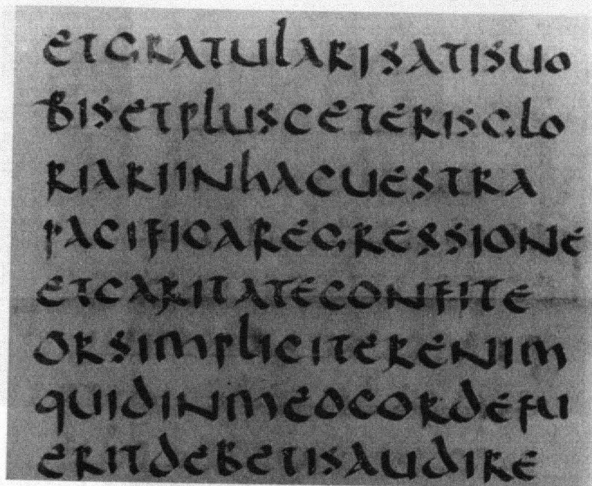 ETGRATULARISATISUO
BISETPLUSCETERISGLO
RIARIINHACUESTRA
PACIFICAREGRESSIONE
ETCARITATECONFITE
ORSIMPLICITERENIM
QUIDINMEOCORDEFU
ERITDEBETISAUDIRE